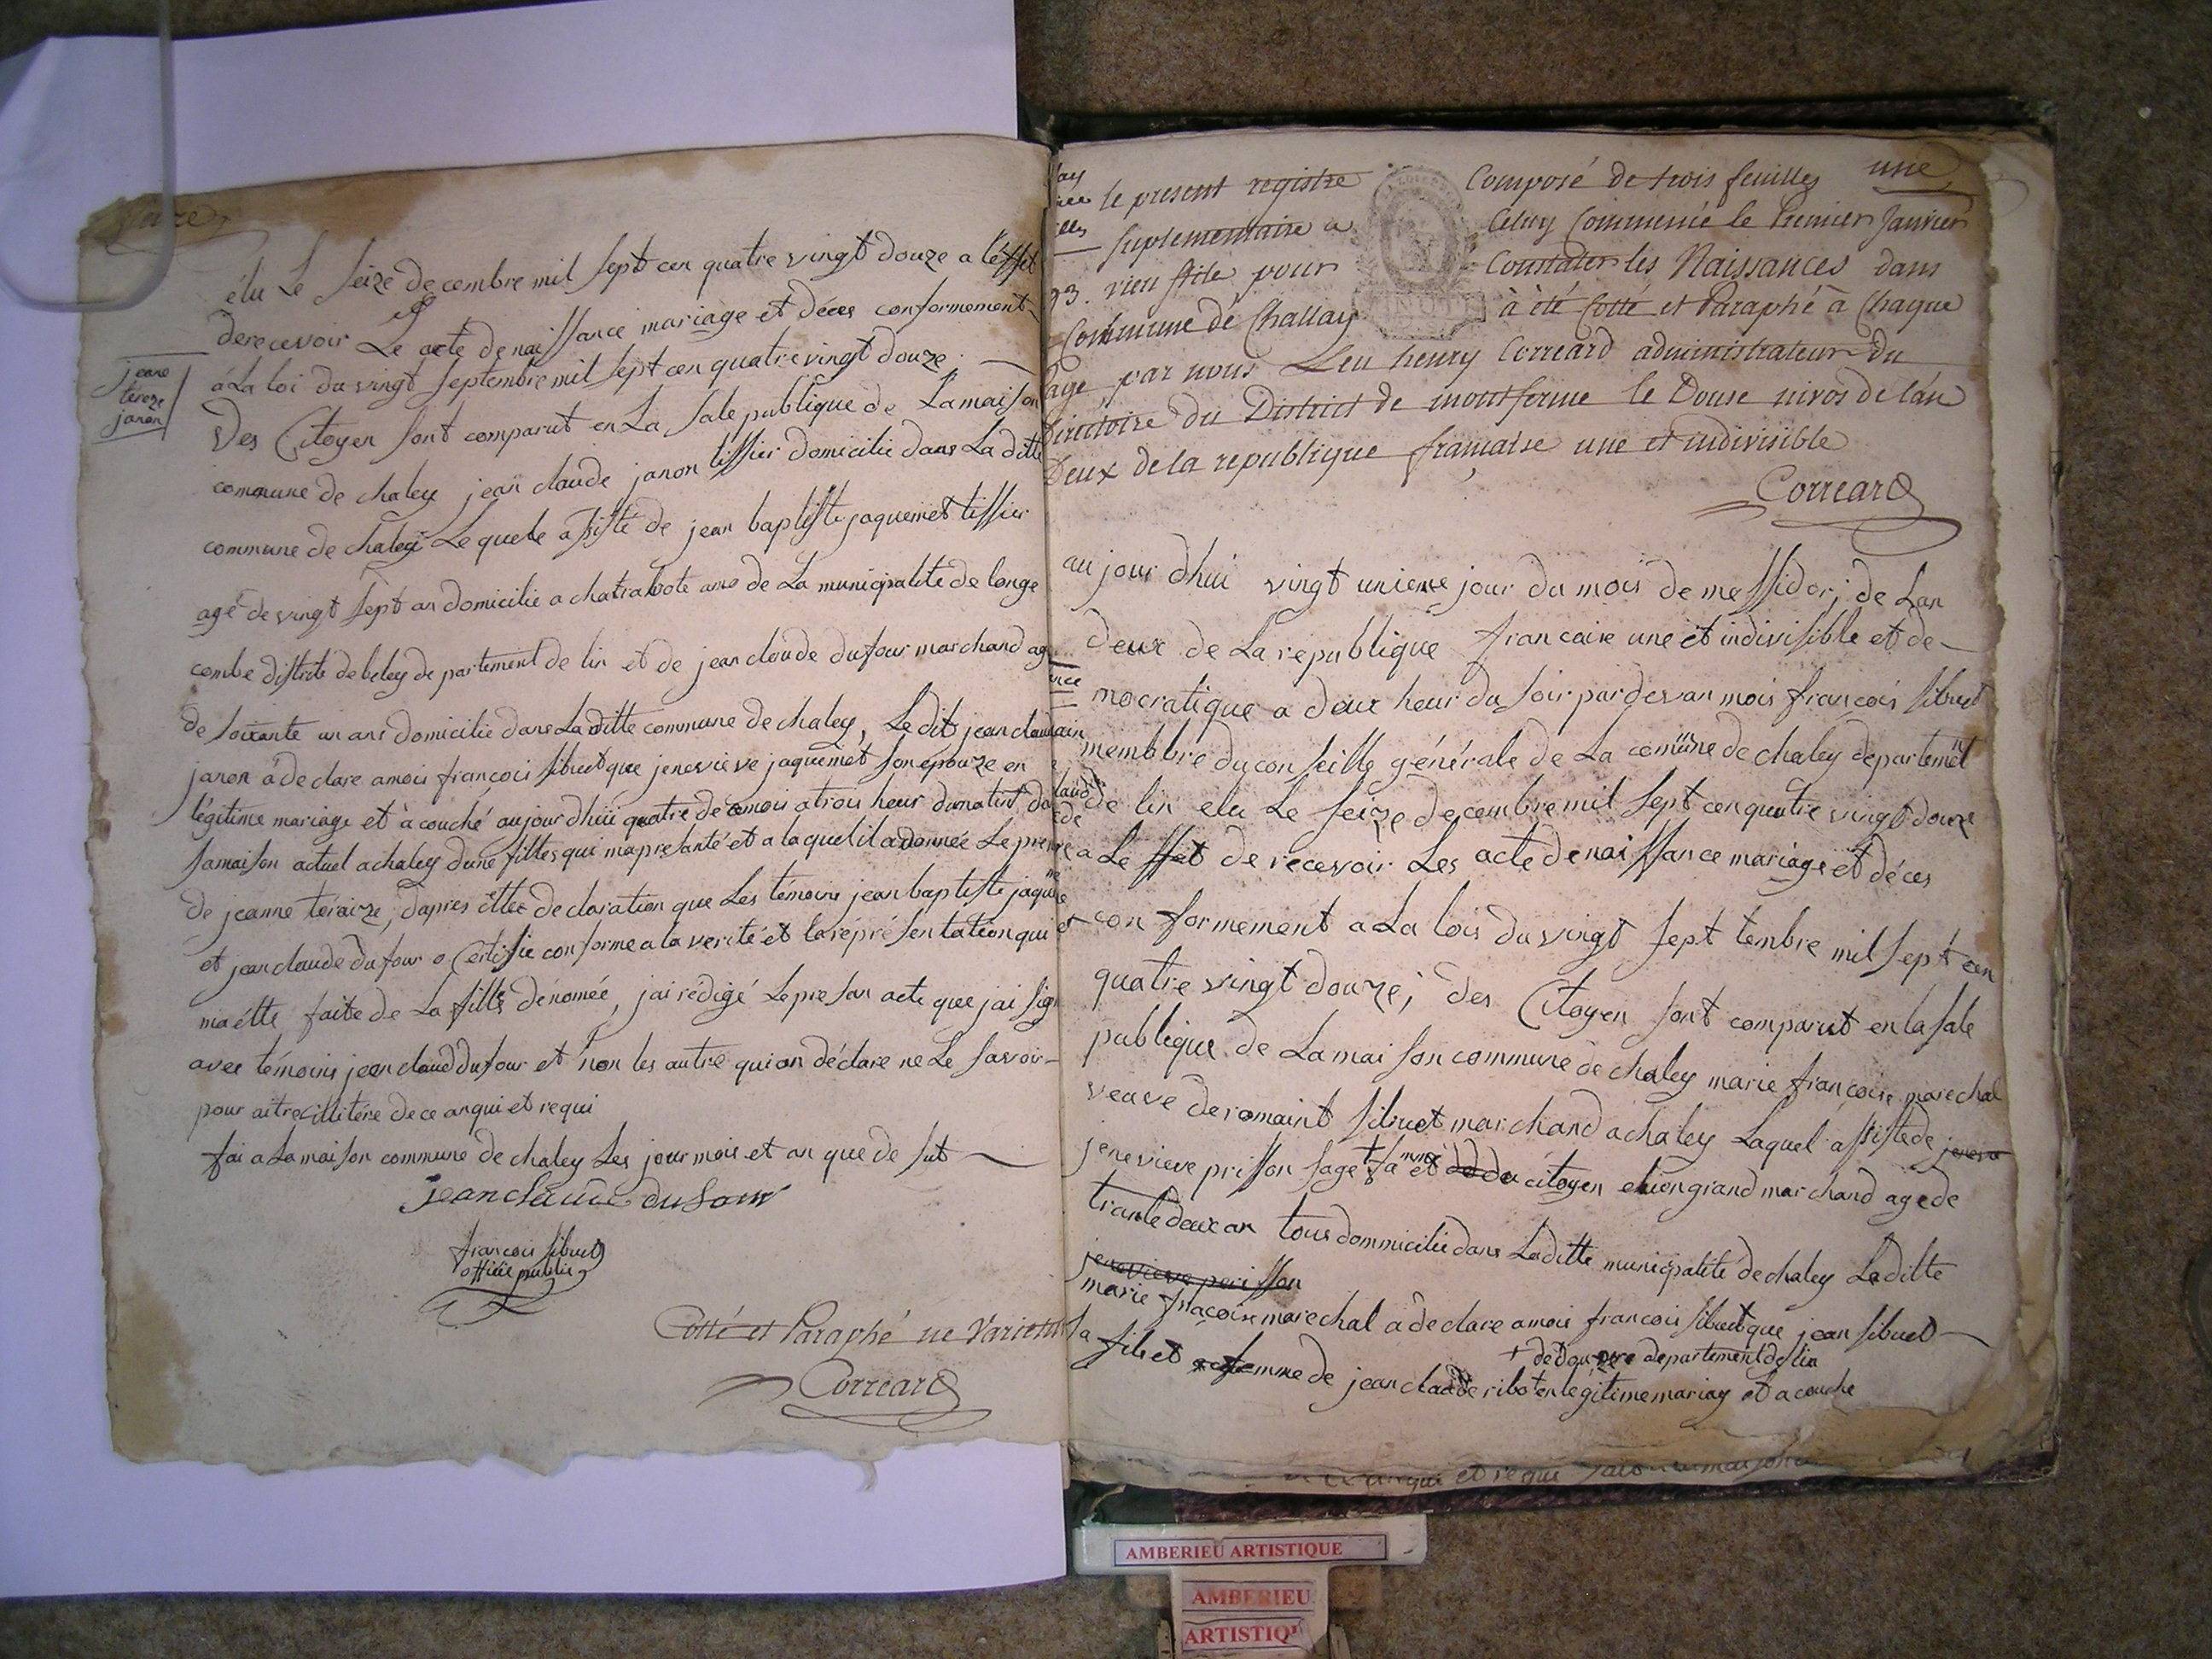 élu Le seize decembre mil sept cen quatre vingt douze a leffet
derecevoir Le acte de naissance mariage et déces conformement
à La loi du vingt septembre mil sept cen quatre vingt douze
Des Citoyen sont comparut en La sale publique de Lamaison
commune de chaley jean claude janon tissier domicilie dans La ditte
commune de chaley Le quele assisté de jean baptiste jaquemet tissier
agé de vingt sept an domicilie a de La municipalite de longe
combe distrite de beley departement de lin et de jean cloude dufour marchand ag
de soixante un ans domicilie dans Laditte commune de chaley, Ledit jean claude
janon à declare amoi francoi sibuet que jenevieve jaquemet son epouze en
légitime mariage et à couché aujourdhui quatre de cemoi a troi heur dumatin da
samaison actuel a chaley dune filles qui mapresanté et a laquel il adonnée Le prem
de jeanne téraize, dapres cette declaration que Les témoins jean baptiste jaqueme
et jean claude dufour o certifie conforme a la verité et la réprésentation qui
ma étte faite de La fille dénomée, jai rédigé Lepresan acte que jai sign
avec témoins jean claud dufour et non les autre qui on déclare ne Le savoir
pour aitre illitére de ce anqui et requi
fai a La maison commune de chaley Les jour mois et an que de sut
jean claude dufour
francois sibuet
officie public
Cotté et Paraphé ne Varietur
Correard
jeane
tereze
janon
le present registre Composé de trois feuilles une
suplementaire a Celuy Commencé le Premier Janvier
93. vieu stile pour Constater les Naissances dans
Commune de Challay à été Cotté et Paraphé à Chaque
Page par nous Leu henry Correard administrateur du
Directoire du District de montferme le Douse nivos de lan
Deux de la republique francaise une et indivisible
Correard
aujour dhui vingt unieme jour du mois de messidor; de Lan
deux de La republique francaise une et indivisible et de
mocratique a deux heur du soir pardevan mois francois sibuet
membbre du conseille générale de La comune de chaley departemet
de lin elu Le seize decembre mil sept cen quatre vingt douze
a Le ffet de recevoir Les acte de naissance mariage et déces
conformement a La lois du vingt sept tembre mil sept cen
quatre vingt douze; des Citoyen sont comparut en la sale
publique de Lamaison commune de chaley marie francoise marechal
veave de romaint sibuet marchand a chaley Laquel assiste de
jenevieve prisson sage fame et du citoyen grand marchand age de
trante deux an tous dommicilie dans Laditte municipalite de chaley Laditte
jenevieve perisson
marie fracoise marechal a declare amoi francoi sibuet que jean sibuet
+ departement de lin
sa file et femme de jean claude ribot en légitime mariag et a couche
et requi
AMBERIEU ARTISTIQUE
AMBERIEU
ARTISTIQ